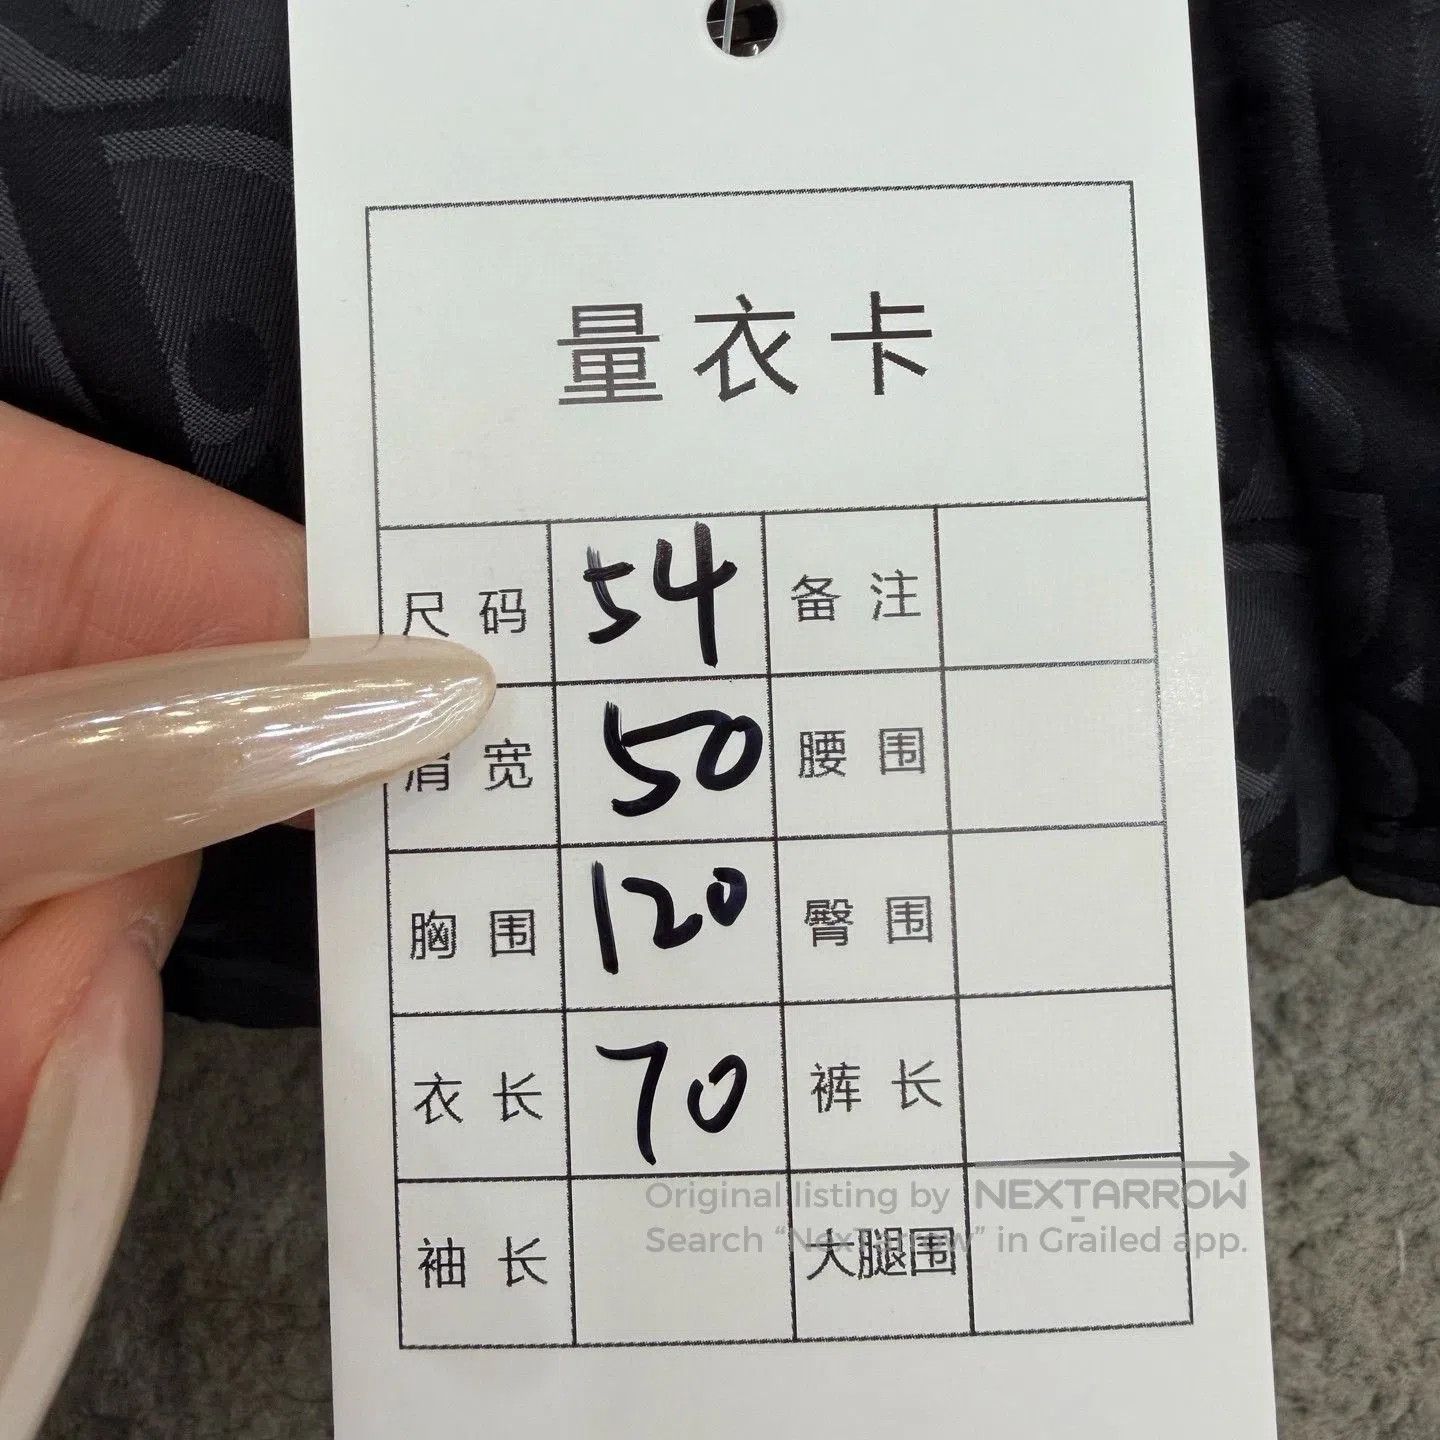 量衣卡
尺码 54 备注
肩宽 50 腰围
胸围 120 臀围
衣长 70 裤长
袖长 大腿围
Original listing by NEXTARROW
Search “NexTarrow” in Grailed app.